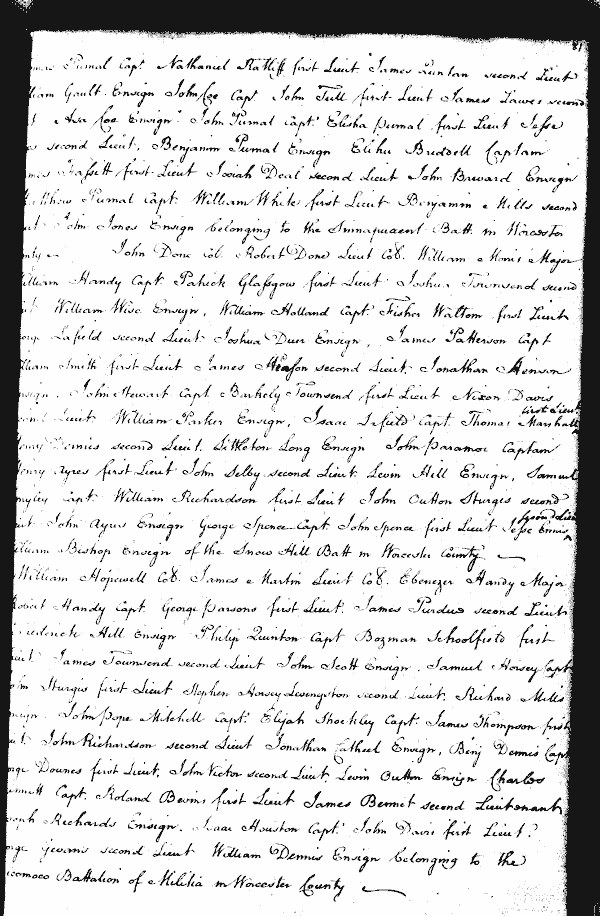 81
Purnal Capt. Nathaniel Ratliff first Lieut James Quntan second Lieut
Gault Ensign John Coe Capt. John Tull first Lieut James Lawes second
Asa Coe Ensign. John Purnal Capt. Elisha Purnal first Lieut Jesse
second Lieut, Benjamin Purnal Ensign Elihu Briddell Captain
Hassett first Lieut Josiah Deal second Lieut John Brevard Ensign
Purnal Capt. William White first Lieut Benjamin Mills second
John Jones Ensign belonging to the Sinnapuxent Batt in Worcester
John Done Col. Robert Done Lieut Col. William Morris Major
William Handy Capt Patrick Glassgow first Lieut Joshua Townsend second
William Wise Ensign, William Holland Capt Fisher Waltom first Lieut
Lafield second Lieut Joshua Duer Ensign, James Patterson Capt
Smith first Lieut James second Lieut. Jonathan Henson
John Stewart Capt Barkely Townsend first Lieut Nixon Davis
first Lieut
Lieut William Parker Ensign, Isaac Lafield Capt. Thomas Marshall
Henry Dennis second Lieut. Littleton Long Ensign John Paramor Captain
Henry Ayres first Lieut John Selby second Lieut Levin Hill Ensign, Samuel
Capt. William Richardson first Lieut John Outton Sturgis second
second Lieu
John Ayres Ensign George Spence Capt John Spence first Lieut Jesse Ennis
William Bishop Ensign of the Snow Hill Batt in Worcester County
William Hopewell Col. James Martin Lieut Col. Ebenezer Handy Major
Robert Handy Capt. George Parsons first Lieut. James Purdue second Lieut
Frederick Hill Ensign Philip Quinton Capt Bozman Schoolfield first
Lieut. James Townsend second Lieut John Scott Ensign. Samuel Horsey Capt
John Sturgis first Lieut Stephen Horsey Levingston second Lieut. Richard Mills
Ensign. John Pope Mitchell Capt. Elijah Shockley Capt. James Thompson first
Lieut. John Richardson second Lieut Jonathan Cathell Ensign, Benj Dennis Capt
Downes first Lieut, John Victor second Lieut, Levin Outton Ensign Charles
Bennett Capt. Roland Bevins first Lieut James Bennet second Lieutenant
Joseph Richards Ensign. Isaac Houston Capt. John Davis first Lieut.
second Lieut William Dennis Ensign belonging to the
Battalion of Militia in Worcester County